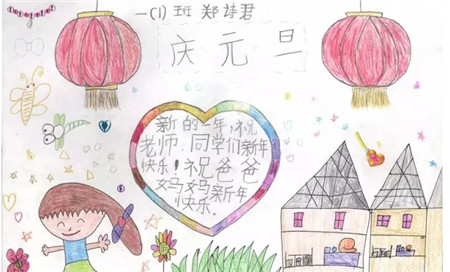 一(1)班 郑诗君
庆元旦
新的一年,祝
老师.同学们新年
快乐!祝爸爸
妈妈新年
快乐。